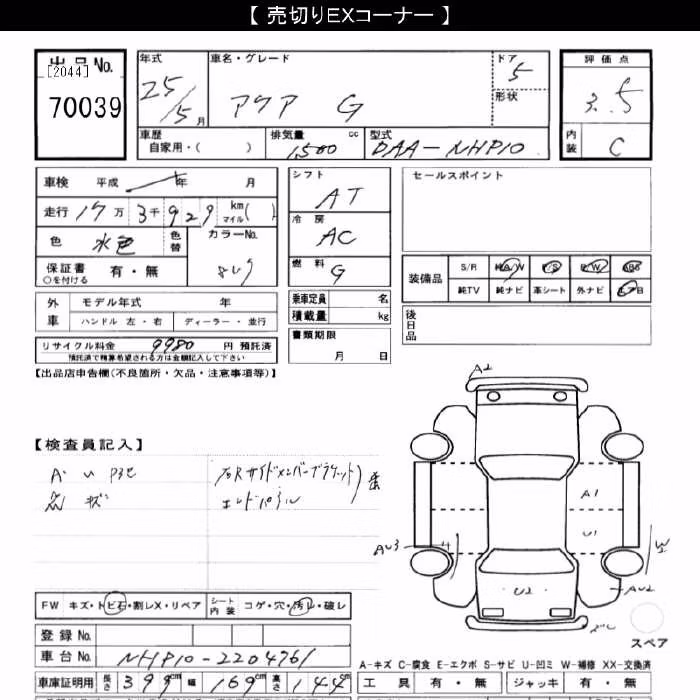 【 売切りEXコーナー 】
出品No.
[2044]
70039
年式
25/5月
車名・グレード
アクア G
ドア
5
形状
評価点
3.5
車歴
自家用・( )
排気量 cc
1500
型式
DAA-NHP10
内装
C
車検 平成 年 月
走行 17万3千929 km マイル( )
色
水色
色替
カラーNo.
保証書 有・無
○を付ける
シフト
AT
冷房
AC
燃料
G
セールスポイント
装備品
S/R 純A/W P/S P/W ABS
純TV 純ナビ 革シート 外ナビ エアB
外車
モデル年式 年
ハンドル 左・右 ディーラー・並行
乗車定員 名
積載量 kg
後日品
リサイクル料金 9980 円 預託済
預託済で精算希望される方は金額記入して下さい
書類期限
月 日
【出品店申告欄(不良箇所・欠品・注意事項等)】
A2
【検査員記入】
キズ
エンドパネル
A1
U1
AU3
W2
U2
AU2
FW キズ・トビ石・割レX・リペア
シート内装 コゲ・穴・汚レ・破レ
スペア
登録No.
車台No. NHP10-2204761
A-キズ C-腐食 E-エクボ S-サビ U-凹ミ W-補修 XX-交換済
車庫証明用 長さ 399cm 幅 169cm 高さ 144cm
工具 有・無 ジャッキ 有・無